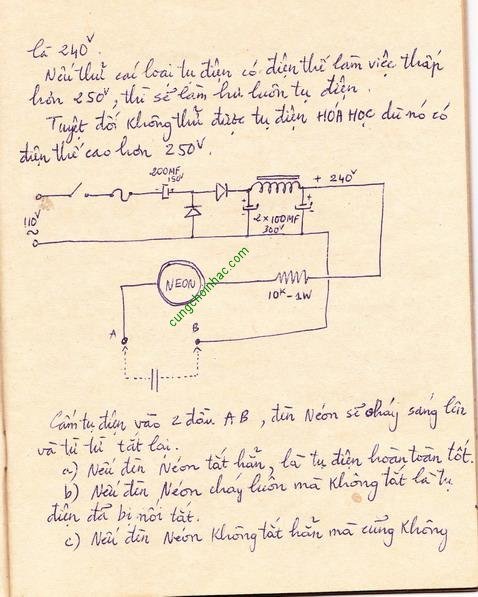 là 240V.
Nếu thử các loại tụ điện có điện thế làm việc thấp
hơn 250V, thì sẽ làm hư luôn tụ điện.
Tuyệt đối không thử được tụ điện HÓA HỌC dù nó có
điện thế cao hơn 250V.
200MF
150V
+ 240V
110V
~
2 x 100MF
300V
NEON
10K - 1W
A
B
cungchoinhac.com
Cắm tụ điện vào 2 đầu AB, đèn Néon sẽ cháy sáng lên
và từ từ tắt lại.
a) Nếu đèn Néon tắt hẳn, là tụ điện hoàn toàn tốt.
b) Nếu đèn Néon cháy luôn mà không tắt là tụ
điện đã bị nối tắt.
c) Nếu đèn Néon không tắt hẳn mà cũng không